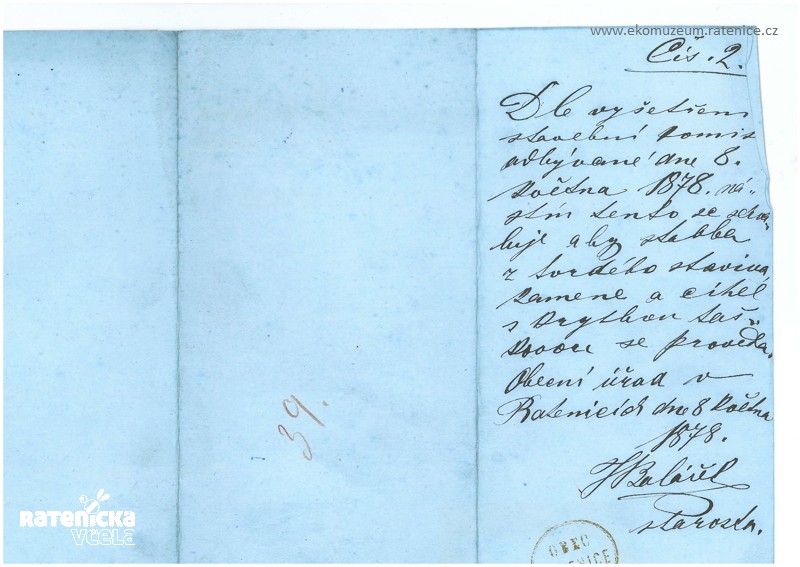 www.ekomuzeum.ratenice.cz
Čís. 2.
Dle vyšetření
stavební komis
odbývané dne 8.
května 1878. ná„
strn tento se schva„
luje aby stavba
z tvrdého staviva,
kamene a cihel
s krytbou taš„
kovou se provedla.
Obecní úřad v
Ratenicích dne 8 května
1878.
starosta.
39.
RATENICKA
VČELA
OBEC